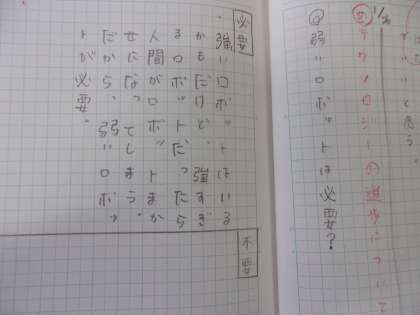 と思う
テクノロジーの進歩について
Q 弱いロボットは必要?
必要
・強いロボットはいる
かもだけど、強すぎ
るロボットだったら
人間がロボットまか
せになってしまう。
だから、弱いロボッ
トが必要。
不要